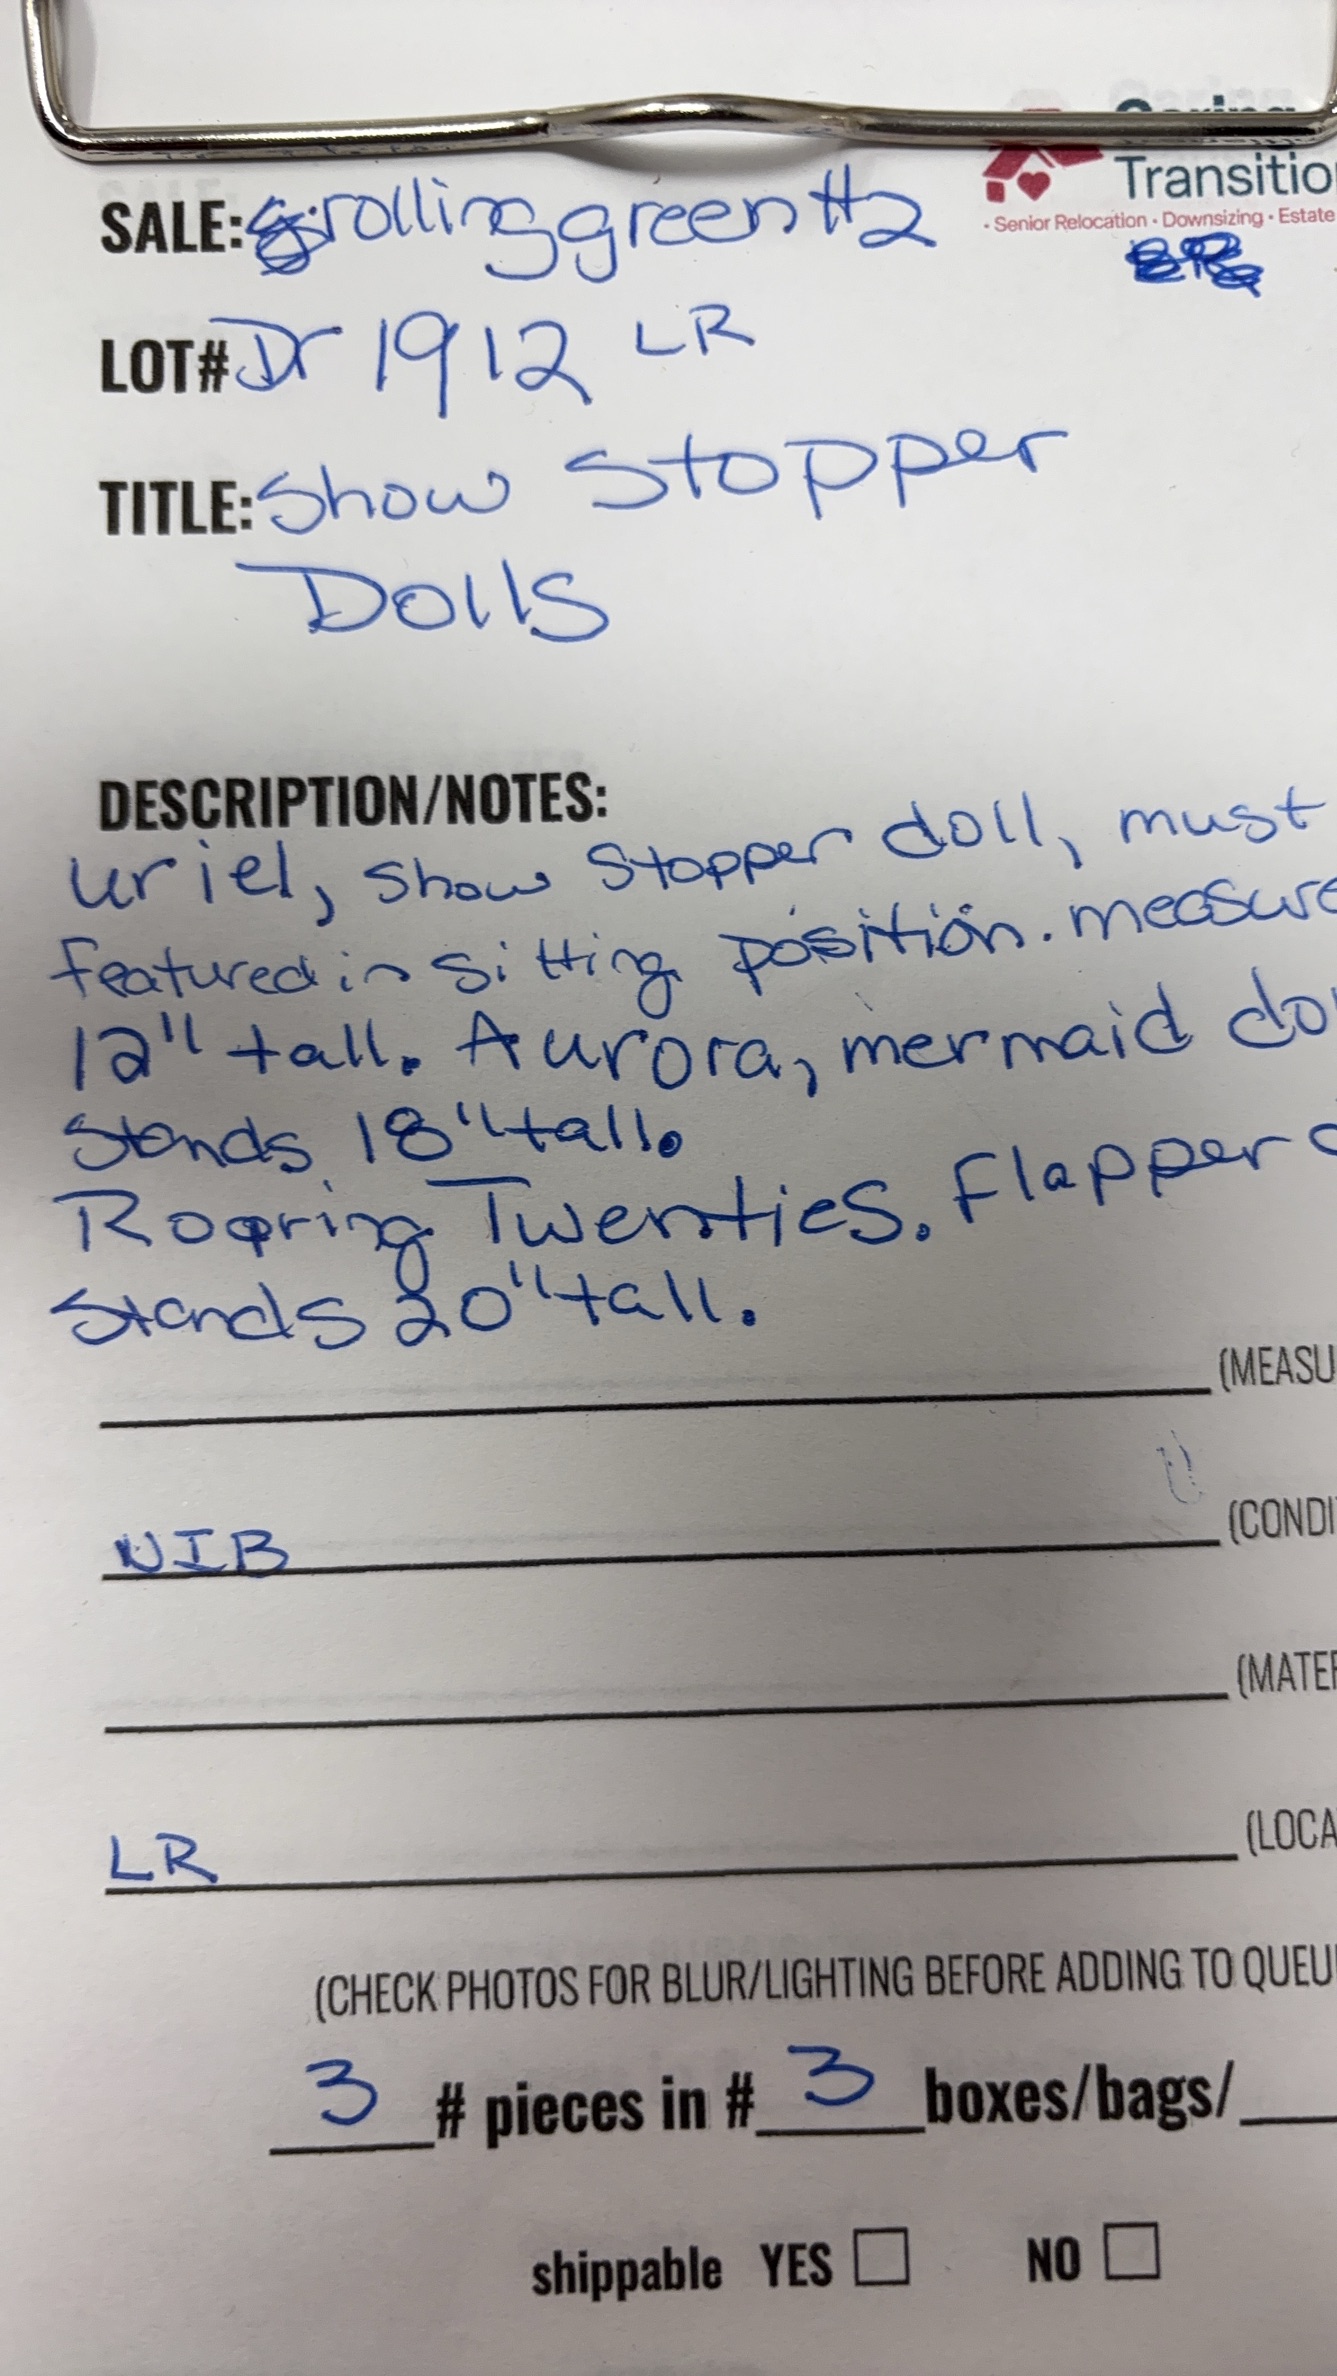 Transitio
· Senior Relocation · Downsizing · Estate
SALE: rolling green #2
LOT# Dr 1912 LR
TITLE: Show Stopper
Dolls
DESCRIPTION/NOTES:
uriel, Show Stopper doll, must
featured in sitting position. measure
12" tall. Aurora, mermaid do
Stands 18" tall.
Roaring Twenties. Flapper
Stands 20" tall.
(MEASU
NIB (CONDI
(MATER
LR (LOCA
(CHECK PHOTOS FOR BLUR/LIGHTING BEFORE ADDING TO QUEU
3 # pieces in # 3 boxes/bags/
shippable YES NO